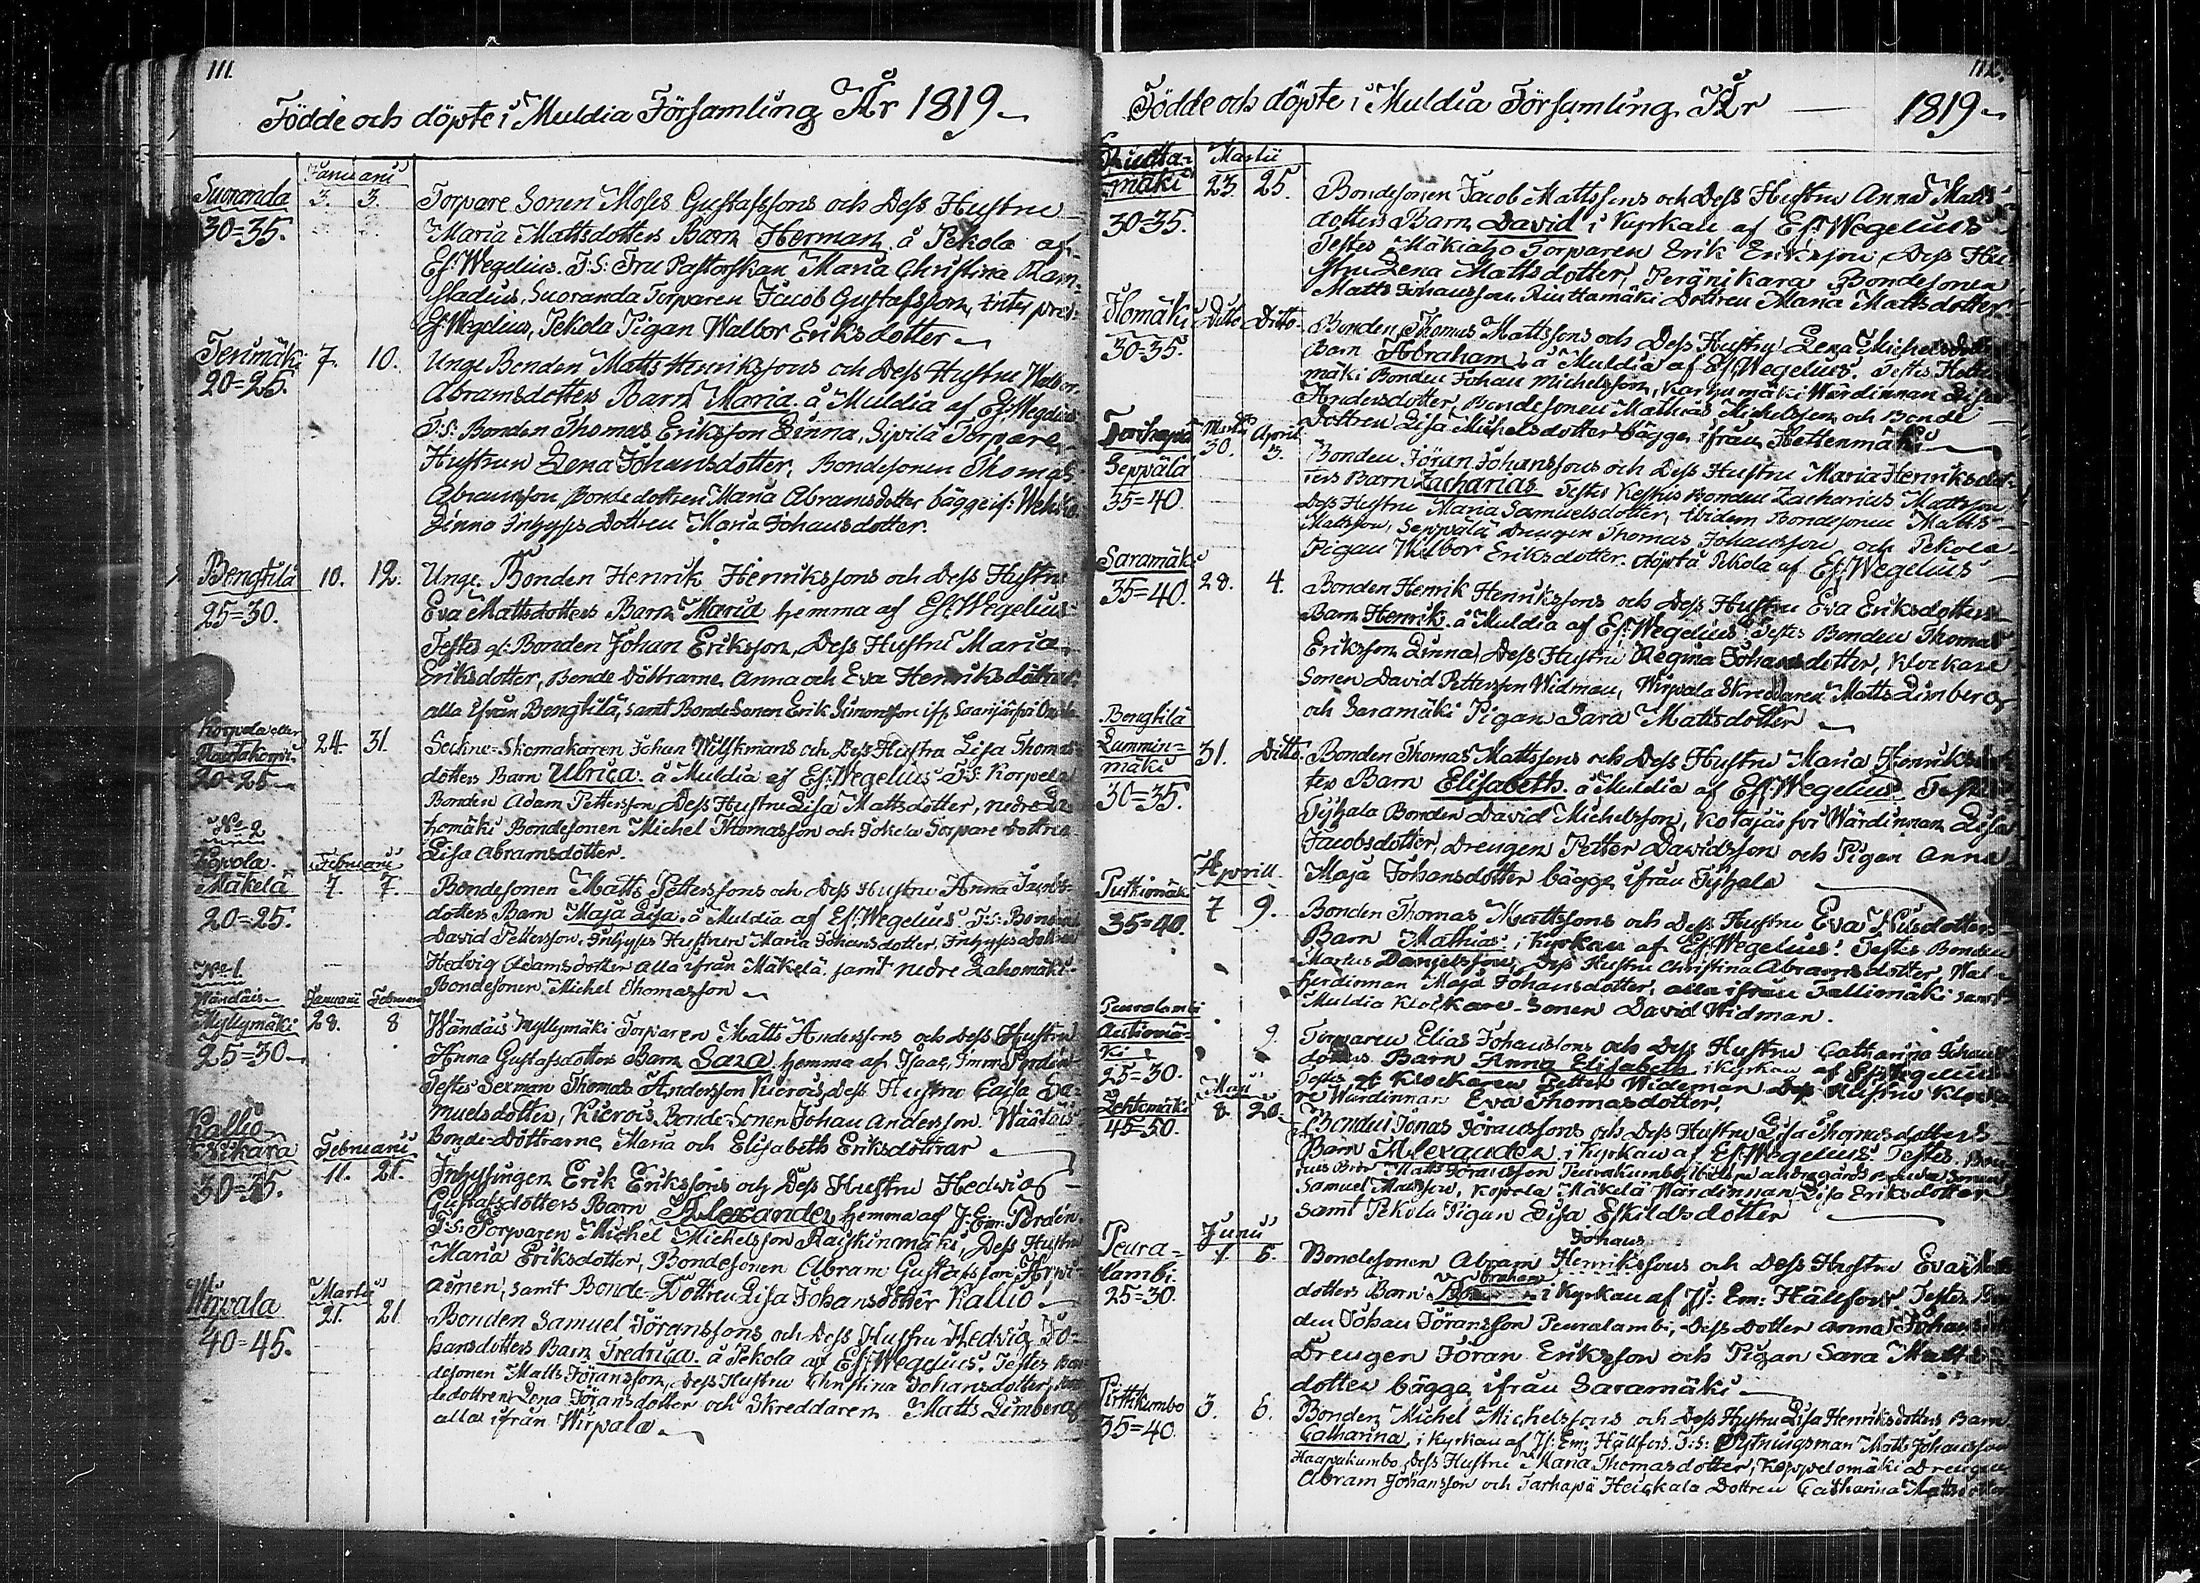 111.
Födde och döpte i Muldia Församling År 1819
Januarii
Suoranda 3. 3. Torpare Sonen Moses Gustafssons och Dess Hustru
30=35. Maria Mattsdotters Barn Herman å Pekola af
Ef: Wegelius. T:S: Fru Pastorskan Maria Christina
Suoranda Torparen Jacob Gustafsson,
Ef: Wegelius, Pekola Pigan Walbor Eriksdotter
7. 10. Unge Bonden Matts Henrikssons och Dess Hustru Walbor
20=25. Abramsdotters Barn Maria å Muldia af Ef: Wegelius
T:S: Bonden Thomas Eriksson Linna, Sipilä Torpare
Hustrun Lena Johansdotter, Bondesonen Thomas
Abramsson, Bonde dottren Maria Abramsdotter bägge if:
Linna Inhyses Dottren Maria Johansdotter.
Bengtilä 10. 12. Unge Bonden Henrik Henrikssons och Dess Hustru
25=30. Eva Mattsdotters Barn Maria hemma af Ef: Wegelius
Testes Bonden Johan Eriksson, Dess Hustru Maria
Eriksdotter, Bonde döttrarne Anna och Eva Henriksdöttrar
alla ifrån Bengtilä, samt Bonde Sonen Erik Simonsson
Korpela eller
24. 31. Sockne-Skomakaren Johan Wilskmans och Dess Hustru Lisa Thomas
20=25 dotters Barn Ulrica å Muldia af Ef: Wegelius T:S: Korpela
Bonden Adam Pettersson Dess Hustru Lisa Mattsdotter, nedre La
homäki Bondesonen Michel Thomasson och Jokela Torpare dottren
Lisa Abramsdotter.
No 2
Februarii
Mäkelä 7. 7. Bondesonen Matts Petterssons och Dess Hustru Anna Jacobs
20=25. dotters Barn Maja Lisa å Muldia af Ef: Wegelius T:S: Bonden
David Pettersson, Inhyses Hustrun Maria Johansdotter, Inhyses Dottren
Hedvig Adamsdotter alla ifrån Mäkelä samt nedre Lahomäki
Bondesonen Michel Thomasson
No 1
Wändäis Januarii Februarii
Myllymäki 28. 8 Wändäis Myllymäki Torparen Matts Anderssons och Dess Hustru
25=30 Anna Gustafsdotters Barn Sara hemma af Isaac Imm: Perdén
Testes Sexman Thomas Andersson Kierois, Dess Hustru Caisa Sa-
muelsdotter, Kierois Bonde Sonen Johan Andersson Wäätäis
Bonde Döttrarne Maria och Elisabeth Eriksdöttrar
Kallio
Februarii
11. 21. Inhysingen Erik Erikssons och Dess Hustru Hedvig
30=35. Gustafsdotters Barn Alexander hemma af I: Em: Perdén.
T:S: Torparen Michel Michelsson Raiskinmäki, Dess Hustru
Maria Eriksdotter, Bondesonen Abram Gustafsson
samt Bonde Dottren Lisa Johansdotter Kallio
Martii
Wirpala 21. 21. Bonden Samuel Göranssons och Dess Hustru Hedvig Jo-
40=45. hansdotters Barn Fredrica å Pekola af Ef: Wegelius. Testes Bon-
desonen Matts Göransson, Dess Hustru Christina Johansdotter, Bon-
dedottren Lena Göransdotter och Skreddaren Matts Limberg
alla ifrån Wirpala
Födde och döpte i Muldia Församling År 1819
Martii
mäki 23 25. Bondesonen Jacob Mattssons och Dess Hustru Anna Matts
30=35. dotters Barn David i Kyrkan af Ef: Wegelius
Testes Torparen Erik Eriksson, Dess Hu
stru Lena Mattsdotter, Bondesonen
Matts Johansson, Dottren Maria Mattsdotter
Ditto Ditto Bonden Thomas Mattssons och Dess Hustru Lena Michelsdotters
30=35. Barn Abraham å Muldia af Ef: Wegelius. Testes
mäki Bonden Johan Michelsson, Karhumäki Wärdinnan Lisa
Andersdotter Bondesonen Mathias Michelsson och Bonde
Dottren Lisa Michelsdotter bägge ifrån Hettenmäki
Tarhapä Martii 30. April 3. Bonden Jöran Johanssons och Dess Hustru Maria Henriksdot-
Seppälä ters Barn Zacharias Testes Keskis Bonden Zacharias Mattsson
35=40. Dess Hustru Maria Samuelsdotter, ibidem Bondesonen Matts
Mattsson, Seppälä Drengen Thomas Johansson och Pekola
Pigan Walbor Eriksdotter. döpt å Pekola af Ef: Wegelius
Saramäki
35=40. 28. 4. Bonden Henrik Henrikssons och Dess Hustru Eva Eriksdotters
Barn Henrik å Muldia af Ef: Wegelius Testes Bonden Thomas
Eriksson Linna, Dess Hustru Regina Johansdotter, Klockare
Sonen David Pettersson Widman, Wirpala Skreddaren Matts Limberg
och Saramäki Pigan Sara Mattsdotter
Bengtilä
Lummin-
mäki 31. Ditto. Bonden Thomas Mattssons och Dess Hustru Maria Henriksdot-
30=35. ters Barn Elisabeth å Muldia af Ef: Wegelius. Testes
Bonden David Michelsson, Kotajärfvi Wärdinnan Lisa
Jacobsdotter, Drengen Petter Davidsson och Pigan Anna
Maja Johansdotter bägge ifrån
Aprill
Putkimäki 7 9. Bonden Thomas Mattssons och Dess Hustru Eva Nilsdotters
35=40. Barn Mathias i Kyrkan af Ef: Wegelius. Testes Bonden
Martus Danielsson, Dess Hustru Christina Abramsdotter,
Maja Johansdotter, alla ifrån Tallimäki samt
Muldia Klockare-Sonen David Widman.
Peuralambi
Autiomä-
ki 9. Torparen Elias Johanssons och Dess Hustru Catharina Johans
25=30. dotters Barn Anna Elisabeth i Kyrkan af Ef: Wegelius
Testes Klockaren Petter Wideman Dess Hustru
Wärdinnan Eva Thomasdotter.
Maii
Lehtomäki 8. 20. Bonden Jonas Göranssons och Dess Hustru Lisa Thomasdotters
45=50. Barn Alexander i Kyrkan af Ef: Wegelius. Testes
Matts Göransson
Samuel Mattsson, Kopola Mäkelä Wärdinnan Lisa Eriksdotter
samt Pekola Pigan Lisa Eskildsdotter
Johans
Junii
Peura- 1. 6. Bondesonen Abram Henrikssons och Dess Hustru Eva
lambi Abraham
25=30. dotters Barn i Kyrkan af J: Em: Hällfors. Testes
den Johan Jöransson Peuralambi, Dess Dotter Anna
Drengen Jöran Eriksson och Pigan Sara Matts
dotter bägge ifrån Saramäki
Pirttikumbo 3. 6. Bonden Michel Michelssons och Dess Hustru Lisa Henriksdotters Barn
35=40 Catharina i Kyrkan af J: Em: Hällfors. T:S: Matts Johansson
Haapakumbo, Dess Hustru Maria Thomasdotter, Koppelomäki Drengen
Abram Johansson och Tarhapä Heickala Dottren Catharina Mattsdotter